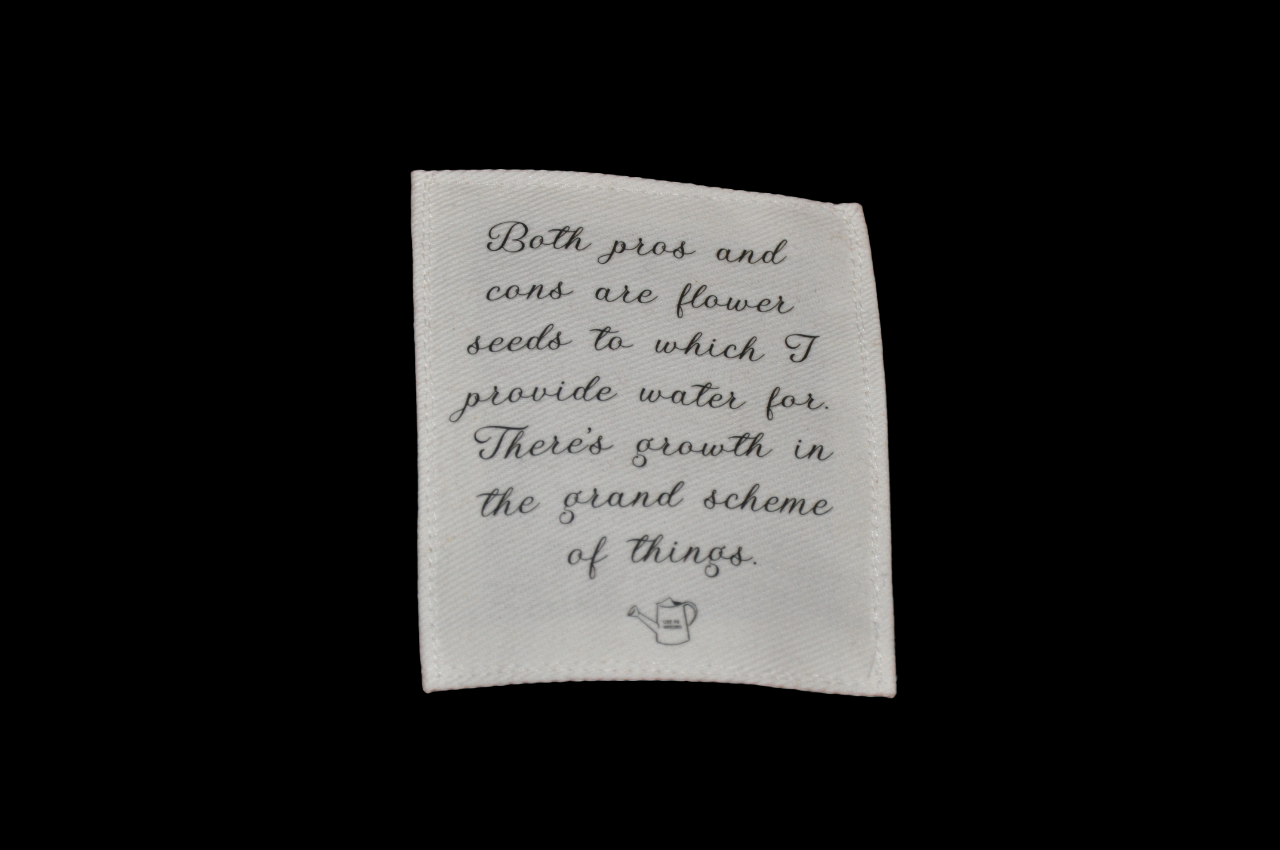 Both pros and
cons are flower
seeds to which I
provide water for.
There's growth in
the grand scheme
of things.